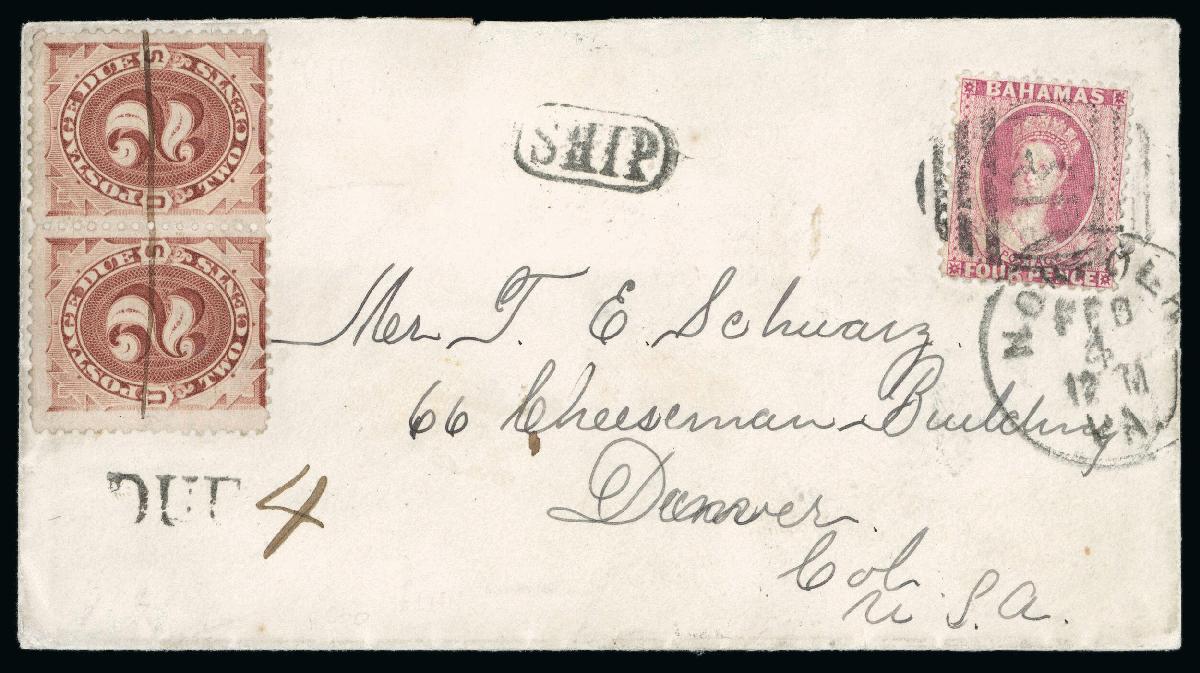 BAHAMAS
FOUR PENCE
SHIP
POSTAGE DUE
U S
2
POSTAGE DUE
U S
2
NORFOLK
FEB
4
12 M
VA.
Mr T. E. Schwarz
66 Cheeseman Building
Denver
Col
U. S. A.
DUE 4